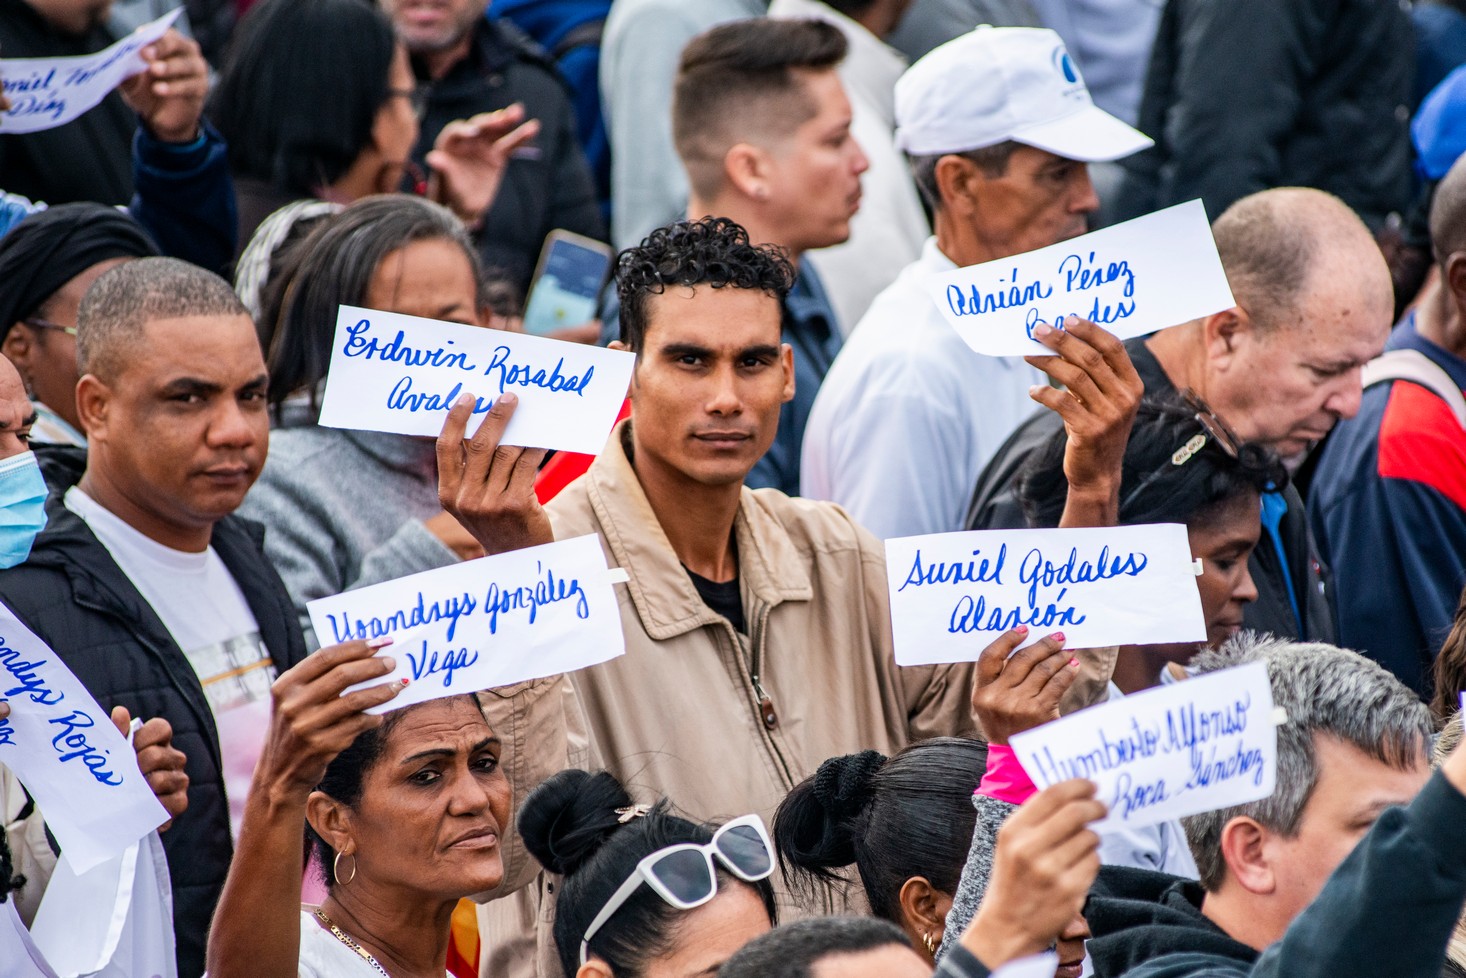 Díaz
Erdwin Rosabal
Avales
Adrián Pérez
Bendes
Yoandrys González
Vega
Suniel Godales
Alarcón
Rojas
Humberto Alfonso
Roca Sánchez